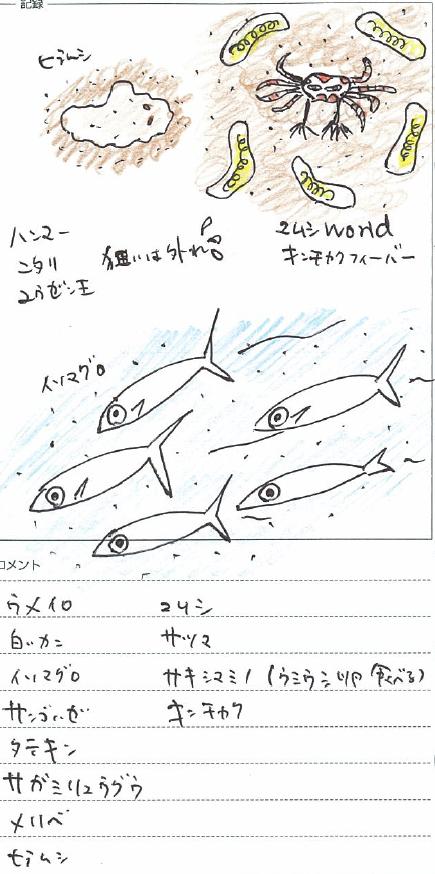 記録
ヒラムシ
ハンマー
ニタリ
ユウゼン玉
狙いは外れ
コムシworld
キンチャクフィーバー
イソマグロ
コメント
ウメイロ
白いカニ
イソマグロ
サンゴハゼ
タテキン
サガミリュウグウ
メリベ
ヒラムシ
コムシ
サツマ
サキシマミノ(ウミウシ卵食べる)
キンチャク